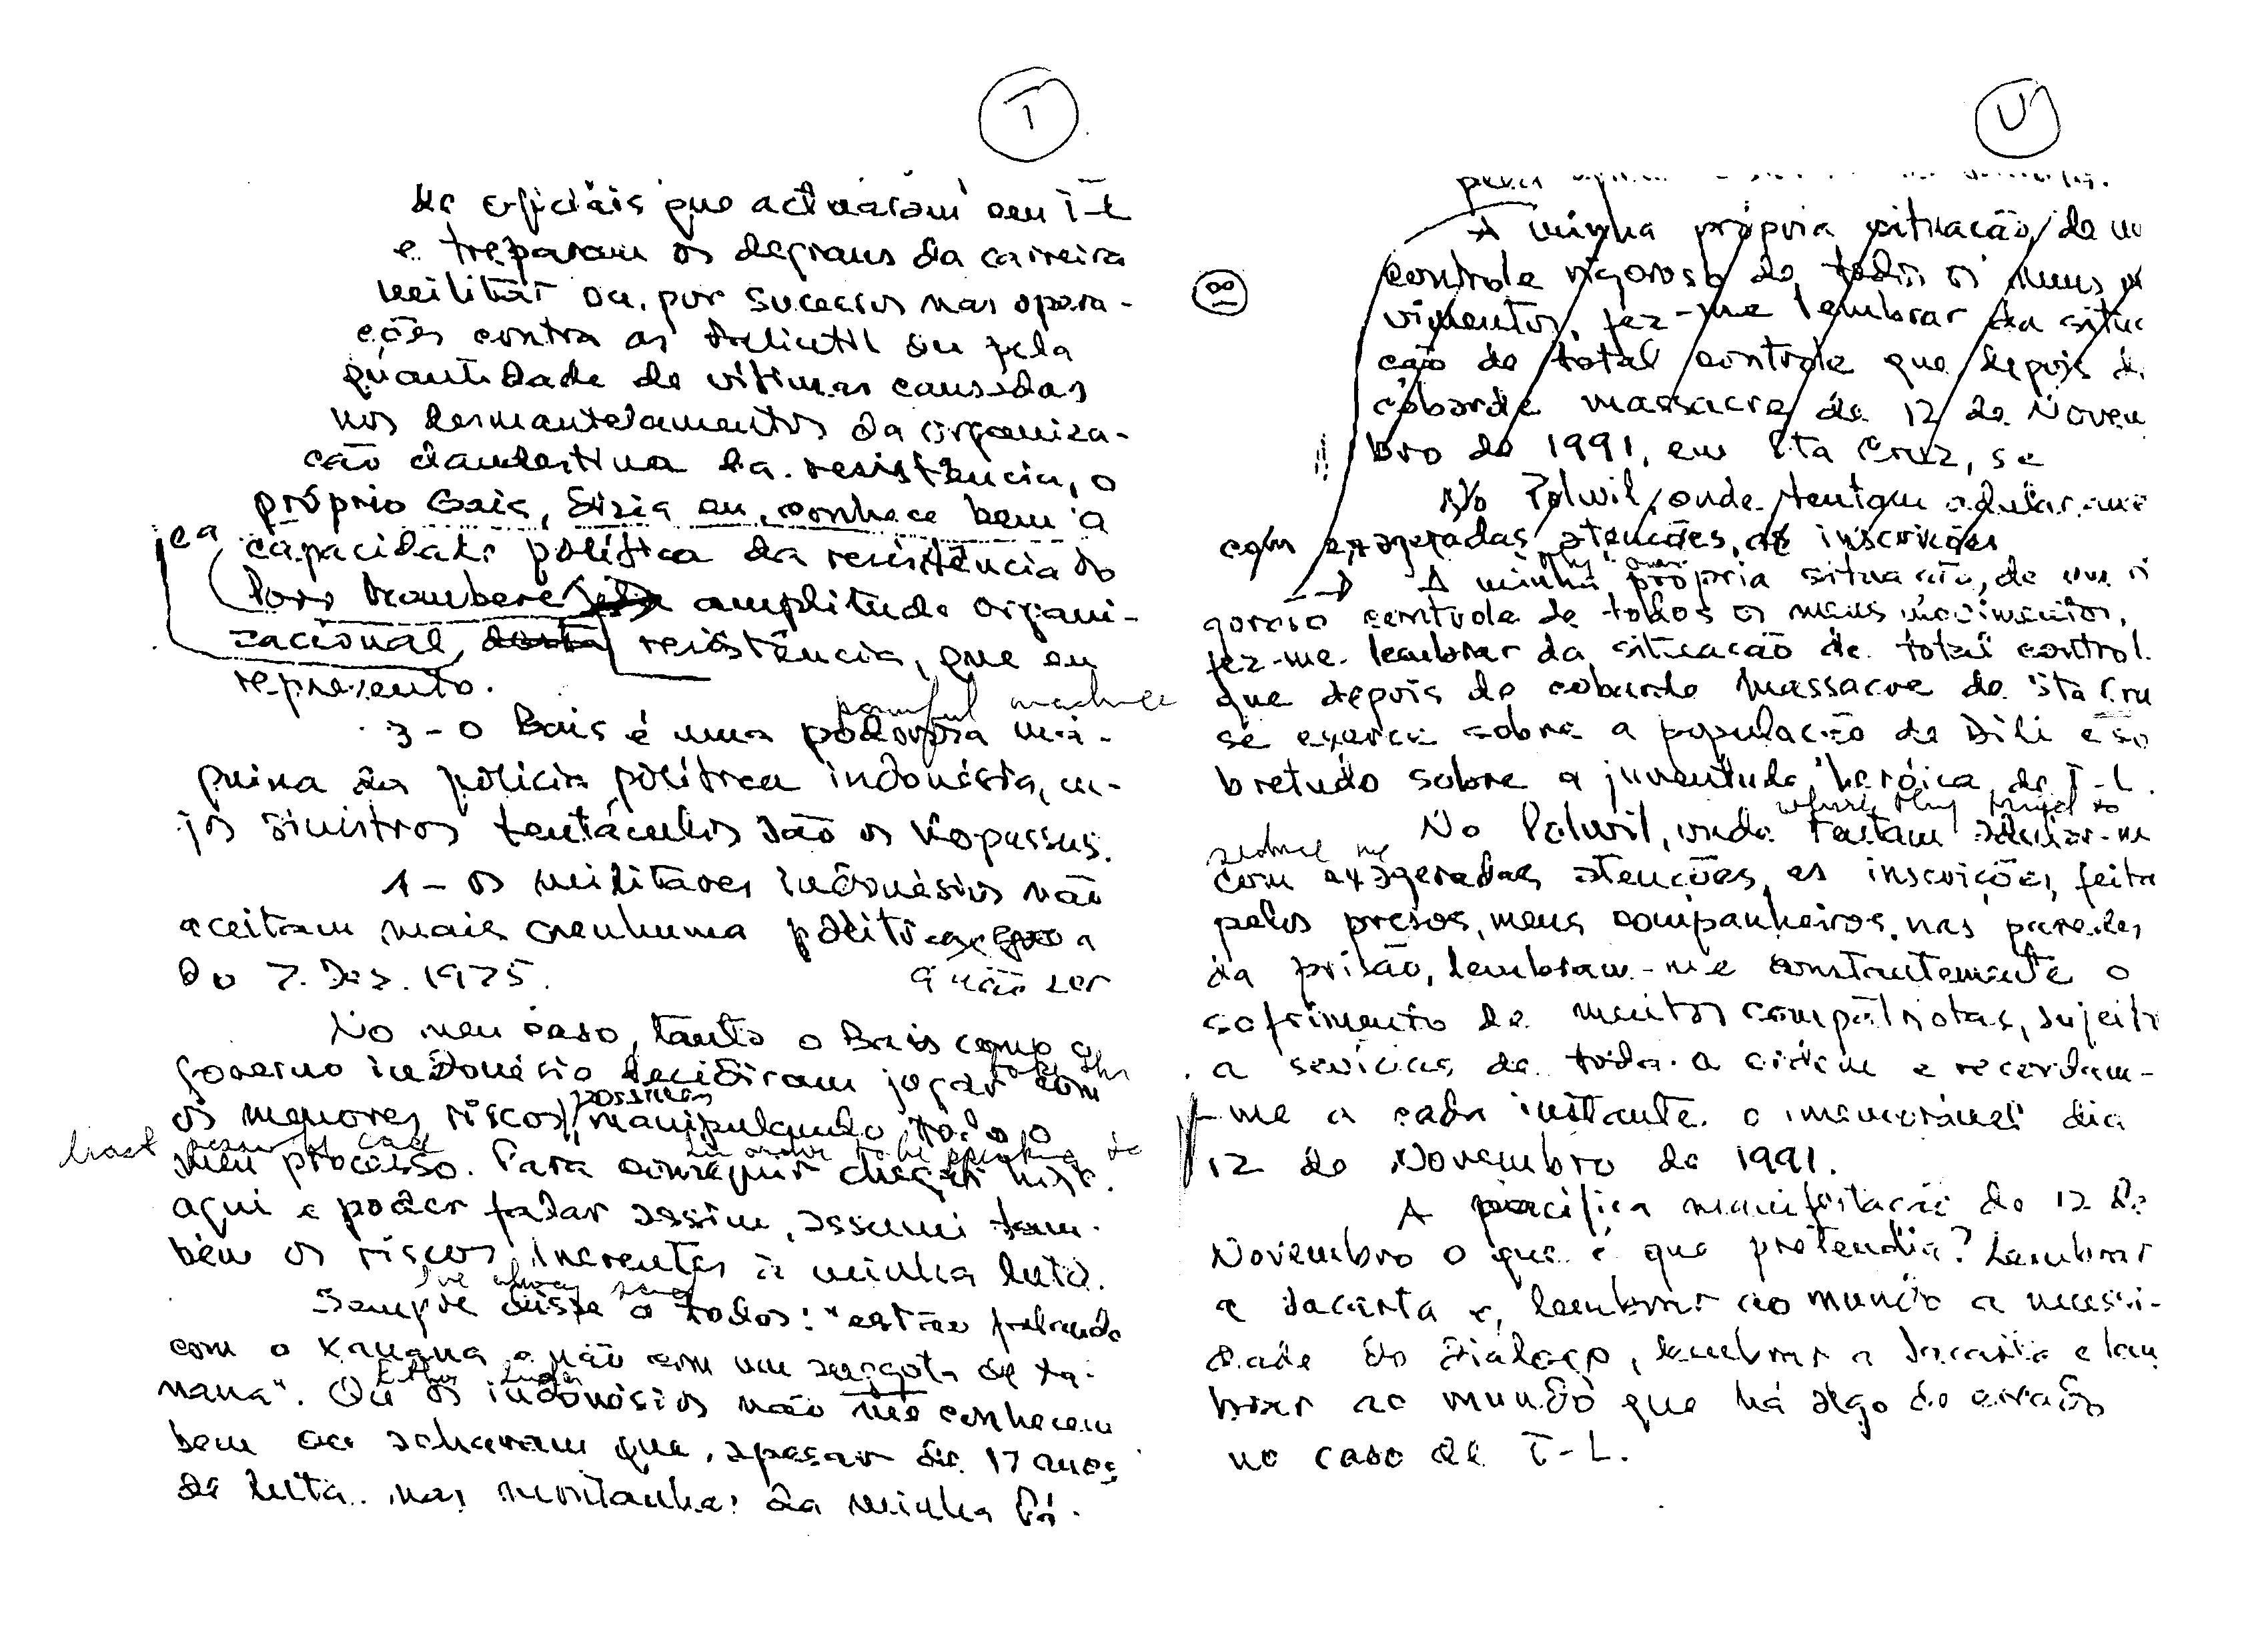 T
de oficiais que actuaram em T-L
e treparam os degraus da carreira
militar ou por sucessos nas opera-
ções contra as Falintil ou pela
quantidade de vítimas causadas
nos desmantelamentos da organiza-
ção clandestina da resistência, o
próprio Bais, dizia eu, conhece bem a
e a
capacidade política da resistência do
Povo Maubere amplitude organi-
zacional, desta resistência, que eu
represento.
powerful machine
3 - O Bais é uma poderosa má-
quina da polícia política indonésia, cu-
jos sinistros tentáculos são os Kopassus.
1 - Os militares indonésios não
aceitam mais nenhuma política
do 7. Dez. 1975.
a não ser
No meu caso, tanto o Bais como o
governo indonésio decidiram jogar com
take the
os menores riscos, manipulando todo o
possíveis
least
meu processo. Para conseguir chegar hoje
in order to be speaking to
aqui e poder falar assim, assumi tam-
bém os riscos inerentes à minha luta.
I've always said
Sempre disse a todos: "estão falando
com o Xanana e não com um
mana". Ou os indonésios não me conhecem
bem ou acharam que, apesar de 17 anos
de luta nas montanhas da minha Pá-
U
A minha própria situação, de um
controle rigoroso de todos os meus mo
vimentos, fez-me lembrar da situa
ção de total controle que depois do
cobarde massacre de 12 de Novem
bro de 1991, em Sta Cruz, se
No Polwil, onde tentam adular-me
com exageradas atenções, as inscrições
My own
A minha própria situação, de um ri
goroso controle de todos os meus movimentos,
fez-me lembrar da situação de total control
que depois do cobarde massacre de Sta Cru
se exerce sobre a população de Dili e so
bretudo sobre a juventude heróica de T-L.
where they tried to
No Polwil, onde tentam adular-me
seduce me
com exageradas atenções, as inscrições, feita
pelos presos, meus companheiros, nas paredes
da prisão, lembram-me constantemente o
sofrimento de muitos compatriotas, sujeito
a sevícias de toda a ordem e recordam-
-me a cada instante o imemorável dia
12 de Novembro de 1991.
A pacífica manifestação de 12 de
Novembro o que é que pretendia? Lembrar
a Jacarta e, lembrar ao mundo a necessi-
dade do diálogo, lembrar a Jacarta e lem
brar ao mundo que há algo de errado
no caso de T-L.